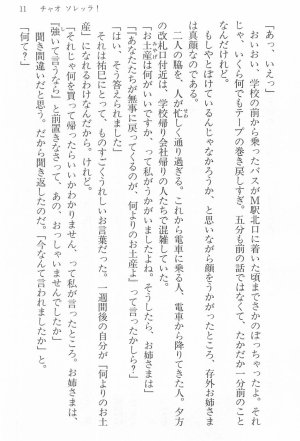 11　チャオ ソレッラ！
「あっ、いえっ」
おいおい、学校の前から乗ったバスがM駅北口に着いた頃までさかのぼっちゃったよ。それ
じゃ、いくら何でもテープの巻き戻しすぎ。五分も前の話ではなくて、たかだか一分前のこと
なんだけれど。
もしやとぼけているんじゃなかろうか、と思いながら顔をうかがったところ、存外お姉さま
は真顔なのである。
二人の脇を、人が忙しく通り過ぎる。これから電車に乗る人、電車から降りてきた人。夕方
の改札口付近は、学校帰り会社帰りの人たちで混雑していた。
「お土産は何がいいですか、って私がうかがいましたよね。そうしたら、お姉さまは」
「『あなたたちが無事に戻ってくるのが、何よりのお土産よ』って言ったかしら？」
「はい、そう答えられました」
それは祐巳にとって、ものすごくうれしいお言葉だった。一週間後の自分が「何よりのお土
産」になれるわけなんだから。けれど。
「それじゃ何を買って帰ったらいいかわかりません、って私が言ったところ。お姉さまは、
『強いて言うなら』と前置きなさって、あの、おっしゃいませんでしたか」
聞き間違いだと思う。だから聞き返したのだ。「今なんて言われましたか」と。
「何て？」